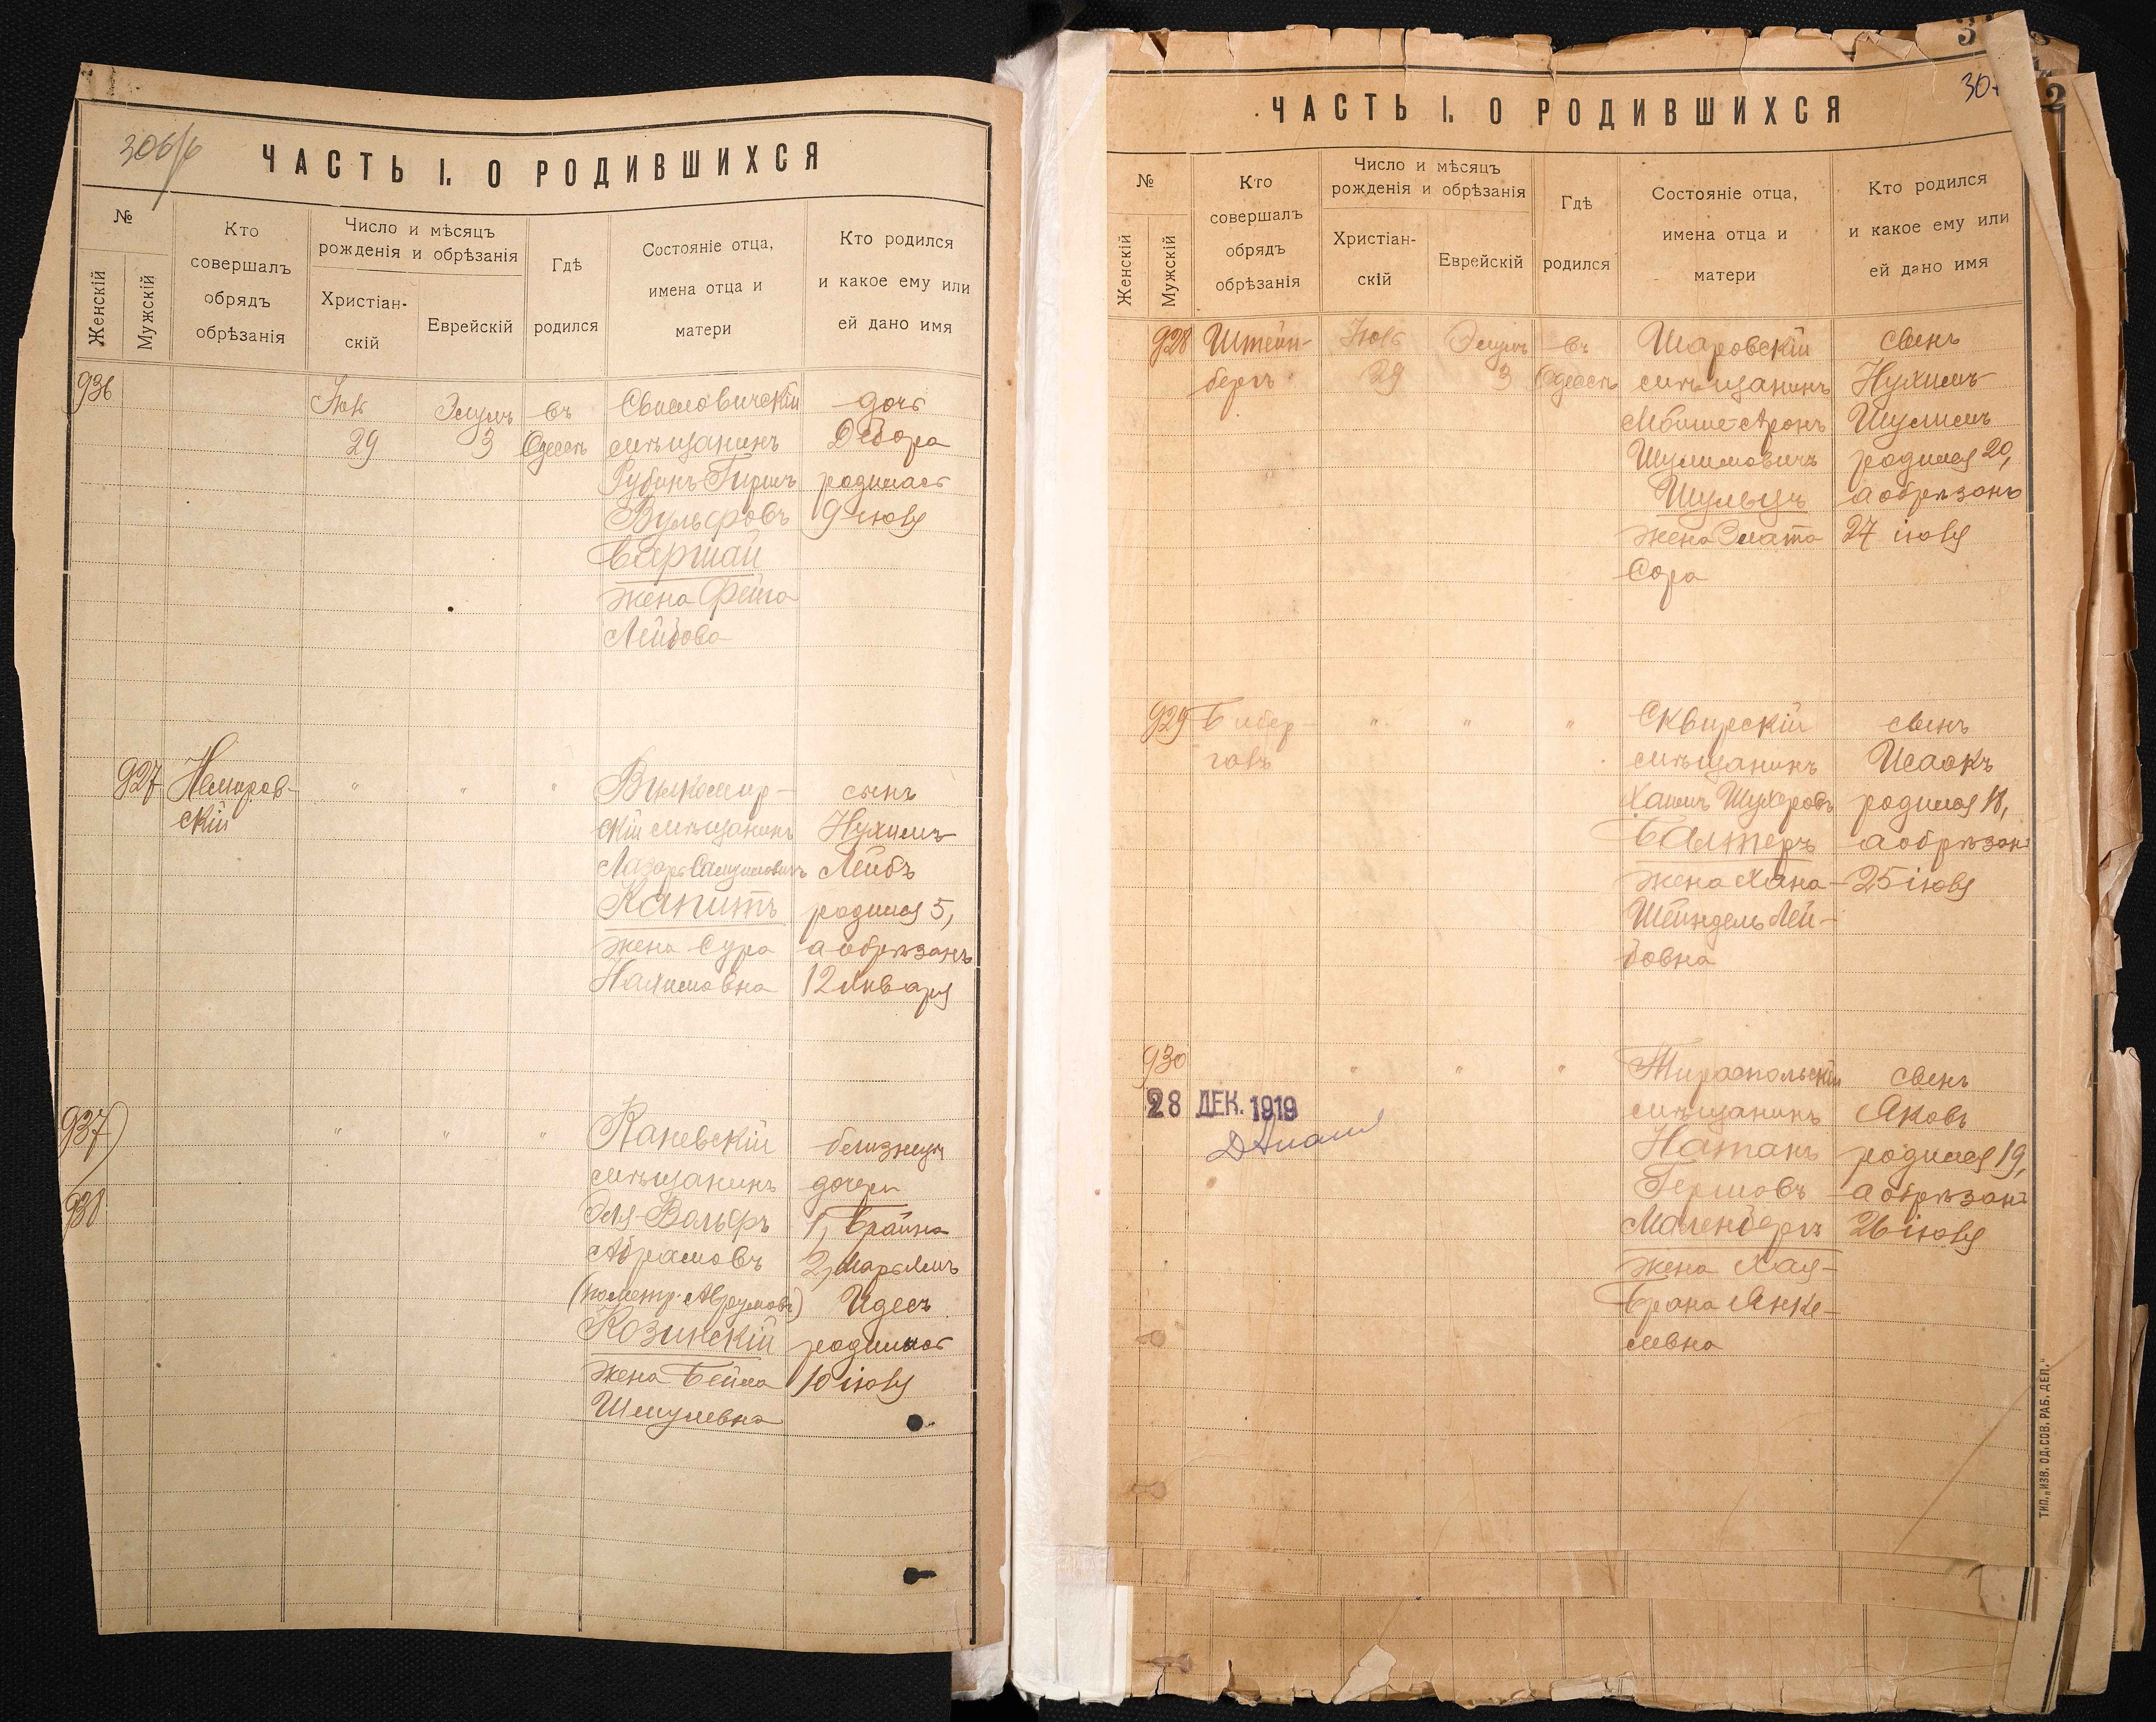 306/б
ЧАСТЬ I. О РОДИВШИХСЯ
№
Женскій
Мужскій
Кто
совершалъ
обрядъ
обрѣзанія
Число и мѣсяцъ
рожденія и обрѣзанія
Христіан-
скій
Еврейскій
Гдѣ
родился
Состояніе отца,
имена отца и
матери
Кто родился
и какое ему или
ей дано имя
936
29
Элулъ
3
въ
Одессѣ
Свисловичскій
мѣщанинъ
Рубинъ-Гиршъ
Вульфовъ
Варшай
жена Фейга
Лейбова
дочь
Дебора
родилась
9 іюля
927
Немиров-
скій
"
"
"
Вилкомир-
скій мѣщанинъ
Лазарь
Капитъ
жена Сура
Нахимовна
сынъ
Нухимъ
Лейбъ
родился 5,
а обрѣзанъ
12 января
937
938
"
"
"
Каневскій
мѣщанинъ
Эля-Вольфъ
Абрамовъ
(по метр. Аврумовъ)
Козинскій
жена Бейла
Шмулевна
близнецы
дочери
1, Брайна
2, Марьямъ
Идесъ
родились
10 іюля
30
ЧАСТЬ I. О РОДИВШИХСЯ
№
Женскій
Мужскій
Кто
совершалъ
обрядъ
обрѣзанія
Число и мѣсяцъ
рожденія и обрѣзанія
Христіан-
скій
Еврейскій
Гдѣ
родился
Состояніе отца,
имена отца и
матери
Кто родился
и какое ему или
ей дано имя
928
Штейн-
бергъ
29
Элулъ
3
въ
Одессѣ
Шаровскій
мѣщанинъ
Мойше-Аронъ
Шулимовичъ
Шульцъ
жена Злата
Сора
сынъ
Нухимъ
Шулимъ
родился 20,
а обрѣзанъ
27 іюля
929
Бибер-
галъ
"
"
"
Сквирскій
мѣщанинъ
Хаимъ
Балтеръ
жена Хана-
Шейндель Лей-
бовна
сынъ
Исаакъ
родился 18,
а обрѣзанъ
25 іюля
930
"
"
"
Тираспольскій
мѣщанинъ
Натанъ
Гершовъ
жена Хая-
Брана Янке-
левна
сынъ
Яковъ
родился 19,
а обрѣзанъ
26 іюля
28 ДЕК. 1919
ТИП. „ИЗВ. ОД. СОВ. РАБ. ДЕП."